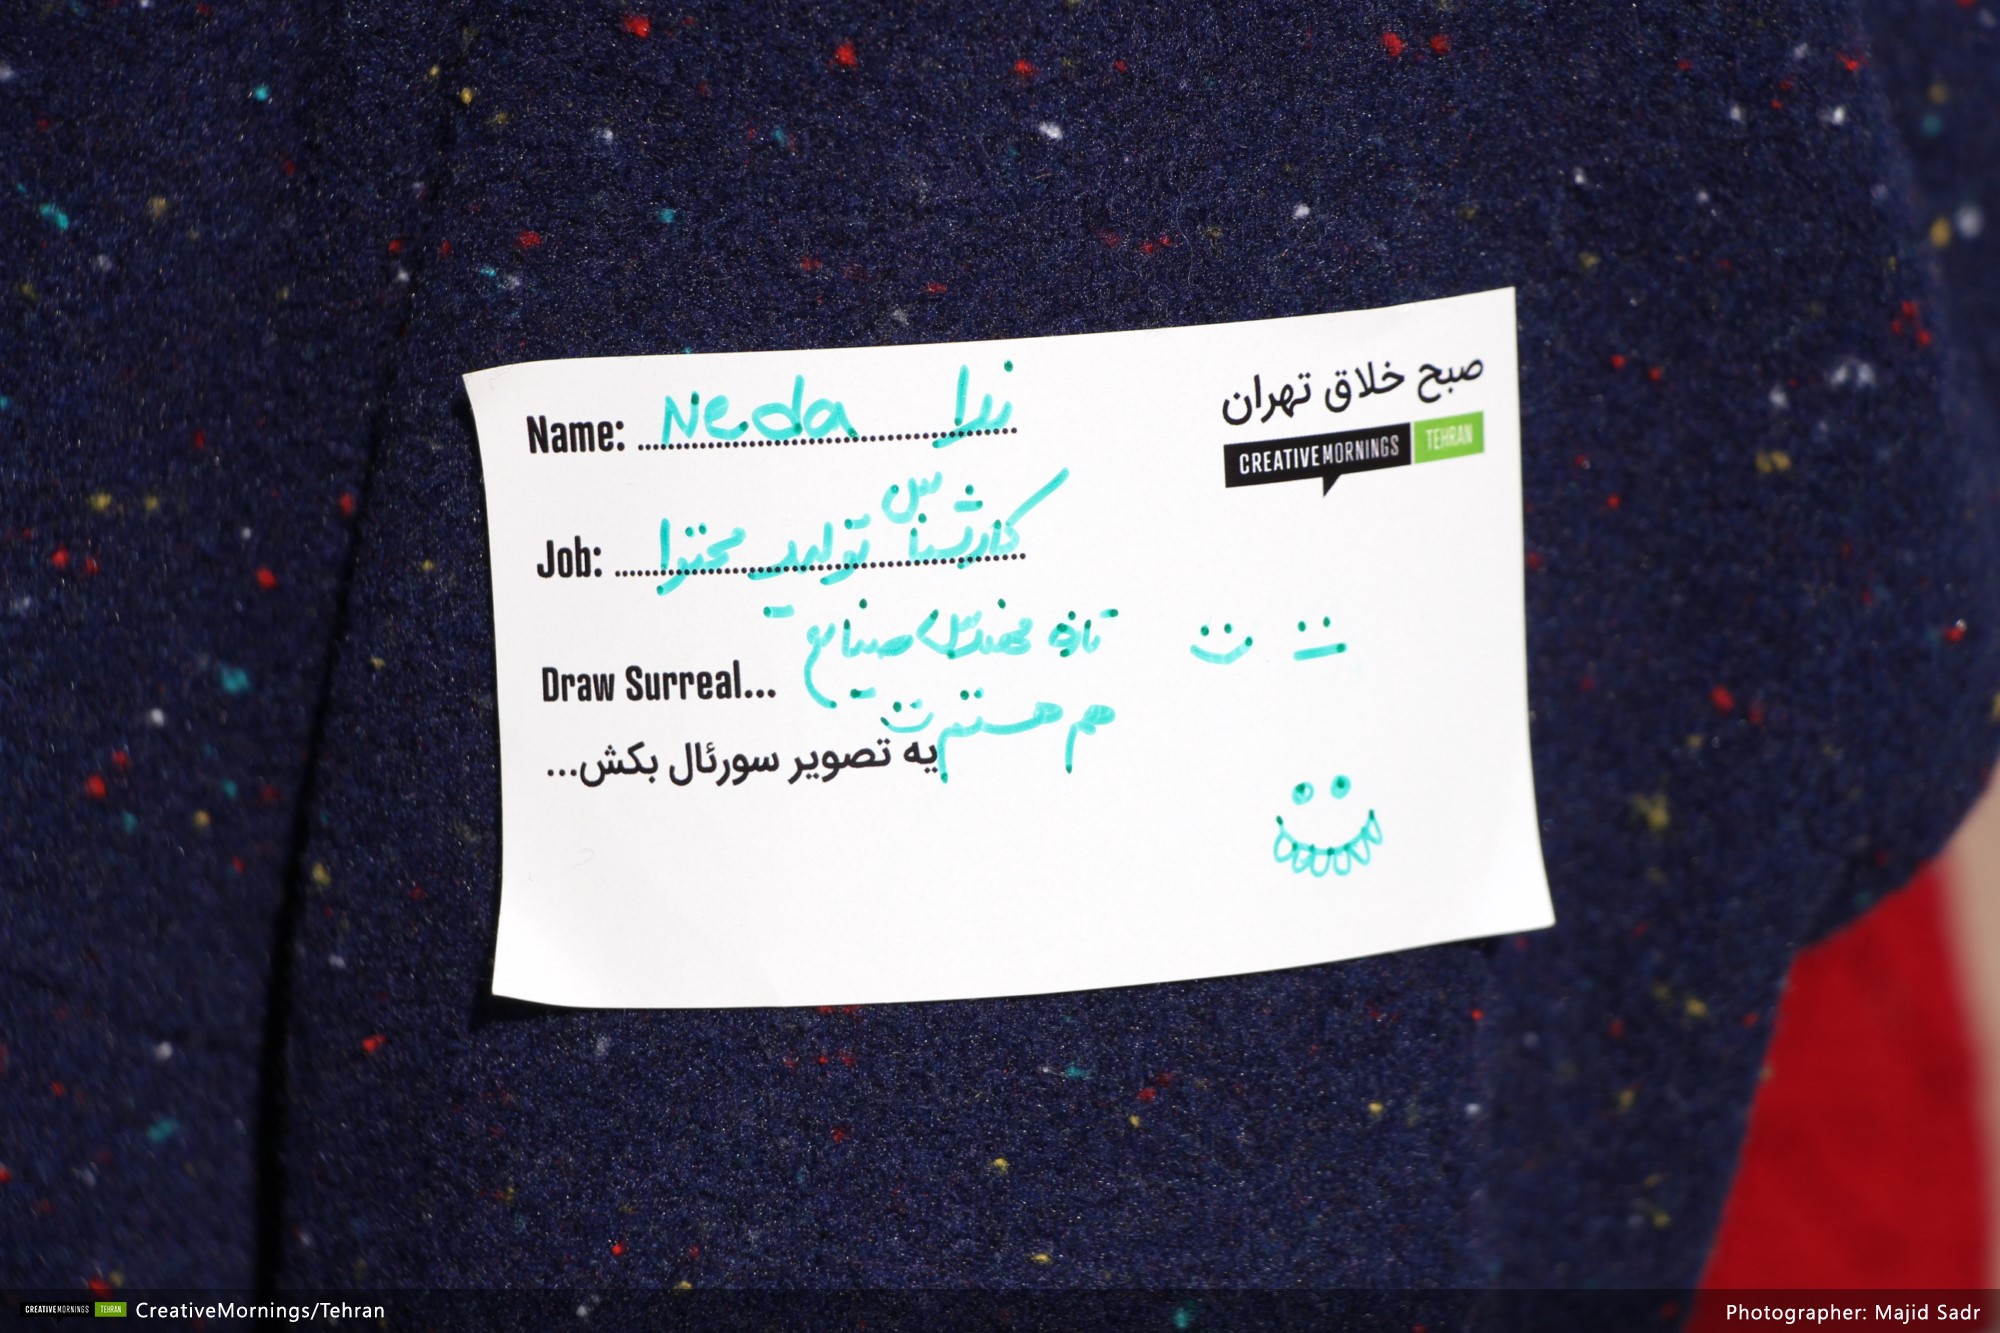 صبح خلاق تهران
CREATIVEMORNINGS TEHRAN
Name: Neda ندا
Job: کارشناس تولید محتوا
تازه مهندس صنایع
هم هستم
Draw Surreal...
یه تصویر سورئال بکش...
CREATIVEMORNINGS TEHRAN CreativeMornings/Tehran
Photographer: Majid Sadr